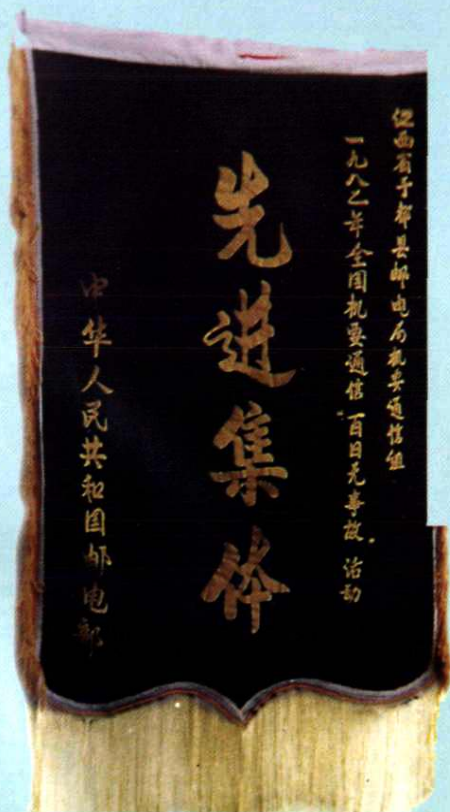 江西省于都县邮电局机要通信组
一九八二年全国机要通信“百日无事故”活动
先进集体
中华人民共和国邮电部